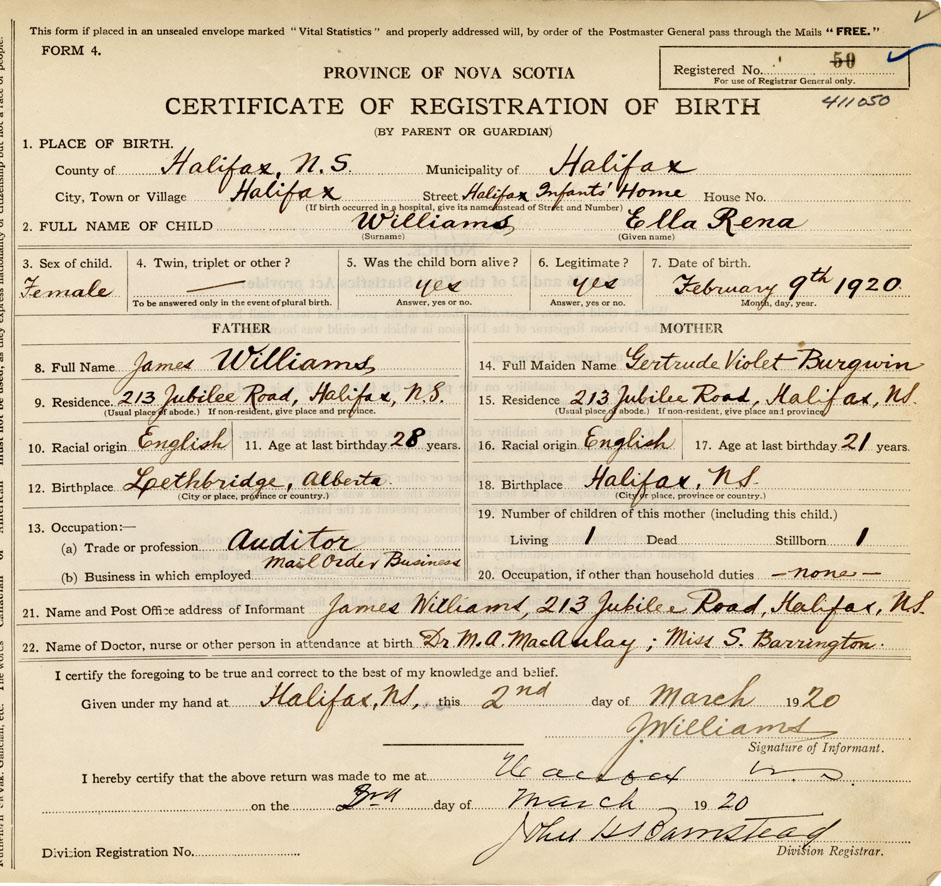 This form if placed in an unsealed envelope marked "Vital Statistics" and properly addressed will, by order of the Postmaster General pass through the Mails "FREE."
FORM 4.
Registered No. 50
For use of Registrar General only.
411050
PROVINCE OF NOVA SCOTIA
CERTIFICATE OF REGISTRATION OF BIRTH
(BY PARENT OR GUARDIAN)
1. PLACE OF BIRTH.
County of Halifax, N.S. Municipality of Halifax
City, Town or Village Halifax Street Halifax Infants' Home House No.
(If birth occurred in a hospital, give its name instead of Street and Number)
2. FULL NAME OF CHILD Williams Ella Rena
(Surname) (Given name)
3. Sex of child. 4. Twin, triplet or other? 5. Was the child born alive? 6. Legitimate? 7. Date of birth.
Female — yes yes February 9th 1920
To be answered only in the event of plural birth. Answer, yes or no. Answer, yes or no. Month, day, year.
FATHER MOTHER
8. Full Name James Williams 14. Full Maiden Name Gertrude Violet Burgwin
9. Residence 213 Jubilee Road, Halifax, N.S. 15. Residence 213 Jubilee Road, Halifax, N.S.
(Usual place of abode.) If non-resident, give place and province. (Usual place of abode.) If non-resident, give place and province
10. Racial origin English 11. Age at last birthday 28 years. 16. Racial origin English 17. Age at last birthday 21 years.
12. Birthplace Lethbridge, Alberta 18. Birthplace Halifax, N.S.
(City or place, province or country.) (City or place, province or country.)
13. Occupation:— 19. Number of children of this mother (including this child.)
(a) Trade or profession Auditor Living 1 Dead Stillborn 1
(b) Business in which employed Mail Order Business 20. Occupation, if other than household duties —none—
21. Name and Post Office address of Informant James Williams, 213 Jubilee Road, Halifax, N.S.
22. Name of Doctor, nurse or other person in attendance at birth Dr. M.A. MacAulay; Miss S. Barrington.
I certify the foregoing to be true and correct to the best of my knowledge and belief.
Given under my hand at Halifax, N.S., this 2nd day of March 1920
J. Williams
Signature of Informant.
I hereby certify that the above return was made to me at
on the 3rd day of March 1920
John H Barnstead
Division Registration No. Division Registrar.